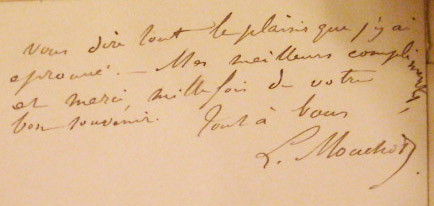 vous dire tout le plaisir que j'y ai
eprouvé. — Mes meilleurs compliments,
et merci, mille fois de votre
bon souvenir. Tout à vous
L. Mouchot